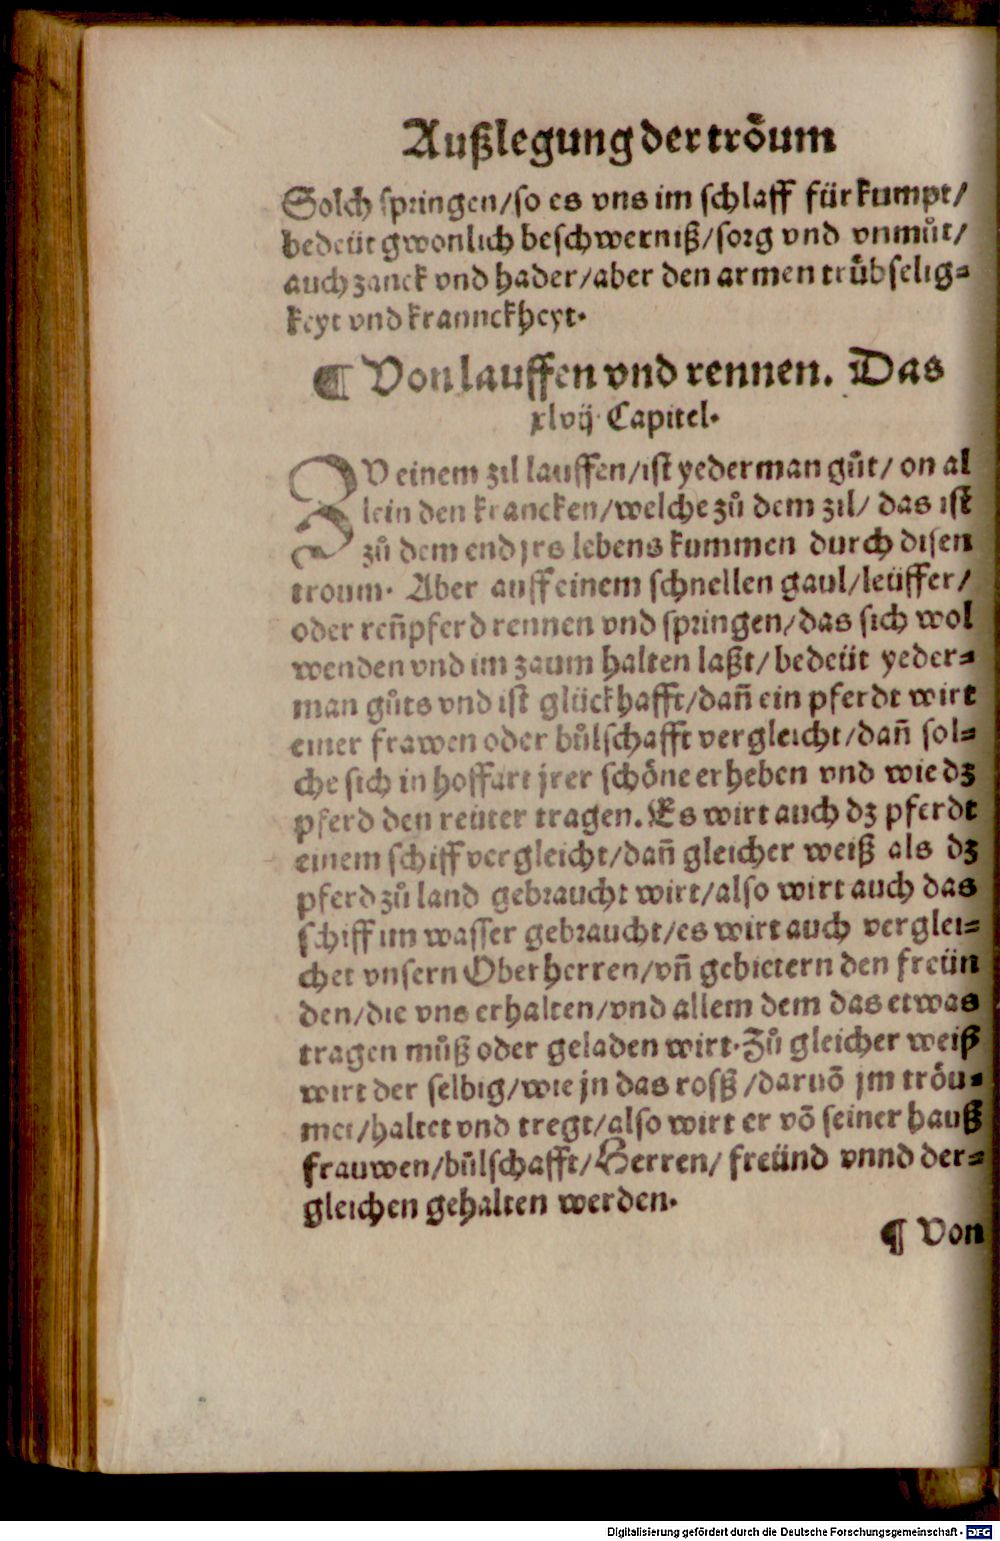 Außlegung der tröum
Solch springen/so es vns im schlaff fürkumpt/
bedeüt gwonlich beschwerniß/sorg vnd vnmůt/
auch zanck vnd hader/aber den armen trůbselig⸗
keyt vnd krannckheyt.
¶ Von lauffen vnd rennen. Das
xlvij. Capitel.
ZV einem zil lauffen/ist yederman gůt/ on al
lein den krancken/welche zů dem zil/ das ist
zů dem end jrs lebens kummen durch disen
troum. Aber auff einem schnellen gaul/leüffer/
oder reñpferd rennen vnd springen/das sich wol
wenden vnd im zaum halten laßt/bedeüt yeder⸗
man gůts vnd ist glückhafft/dañ ein pferdt wirt
einer frawen oder bůlschafft vergleicht/dañ sol⸗
che sich in hoffart jrer schöne erheben vnd wie dz
pferd den reüter tragen. Es wirt auch dz pferdt
einem schiff vergleicht/dañ gleicher weiß als dz
pferd zů land gebraucht wirt/also wirt auch das
schiff im wasser gebraucht/es wirt auch verglei⸗
chet vnsern Oberherren/vñ gebietern den freün
den/die vns erhalten/vnd allem dem das etwas
tragen můß oder geladen wirt. Zů gleicher weiß
wirt der selbig/wie jn das rosß/daruõ jm tröu⸗
met/haltet vnd tregt/also wirt er võ seiner hauß
frauwen/bůlschafft/Herren/ freünd vnnd der⸗
gleichen gehalten werden.
¶ Von
Digitalisierung gefördert durch die Deutsche Forschungsgemeinschaft - DFG